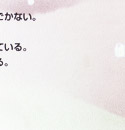 でかない。
ている。
る。